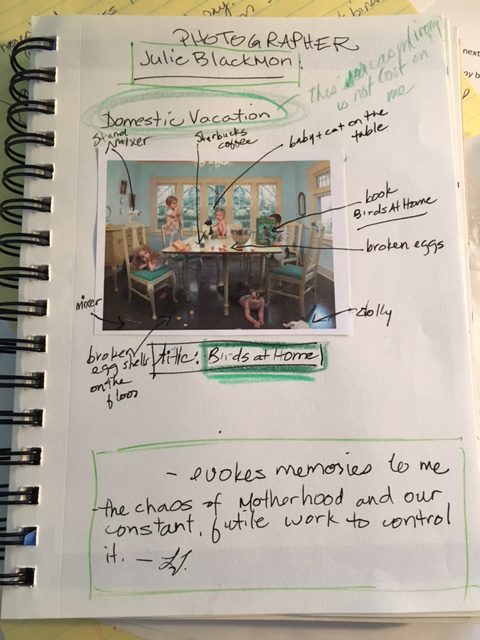 PHOTOGRAPHER
Julie Blackmon
Domestic Vacation
this sarcasm/irony
is not lost on
me
Stand
Mixer
Starbucks
coffee
baby + cat on the
table
book
Birds At Home
broken eggs
mixer
dolly
broken
egg shells
on the
floor
title: Birds at Home
- evokes memories to me
- the chaos of Motherhood and our
constant, futile work to control
it. —